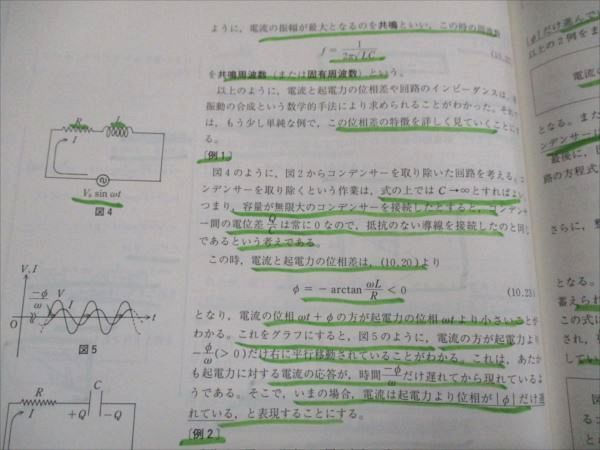 ように、電流の振幅が最大となるのを共鳴といい、この時の周波数
f = 1/2π√LC
を共鳴周波数（または固有周波数）という。
以上のように、電流と起電力の位相差や回路のインピーダンスは、
振動の合成という数学的手法により求められることがわかった。
は、もう少し単純な例で、この位相差の特徴を詳しく見ていくことに
る。
［例1］
図4のように、図2からコンデンサーを取り除いた回路を考える。
ンデンサーを取り除くという作業は、式の上では C→∞とすればよい
つまり、容量が無限大のコンデンサーを接続したとすると、コンデンサ
ー間の電位差 Q/C は常に0なので、抵抗のない導線を接続したのと同
であるという考えである。
この時、電流と起電力の位相差は、(10.20)より
φ = − arctan ωL/R < 0 (10.23)
となり、電流の位相 ωt + φ の方が起電力の位相 ωt より小さいことが
わかる。これをグラフにすると、図5のように、電流の方が起電力より
−φ/ω (>0) だけ右に平行移動されていることがわかる。これは、あたか
も起電力に対する電流の応答が、時間 −φ/ω だけ遅れてから現れているよ
うである。そこで、いまの場合、電流は起電力より位相が |φ| だけ遅
れている、と表現することにする。
［例2］
R L
I
V₀ sin ωt
図4
V, I
−φ/ω V I
O t
図5
R C
I +Q −Q
|φ| だけ進んで
以上の2例をま
電流の
となる。また
ンデンサーに
最後に、
路の方程式
さらに、
となる。
蓄えられ
この式に
され、
してい